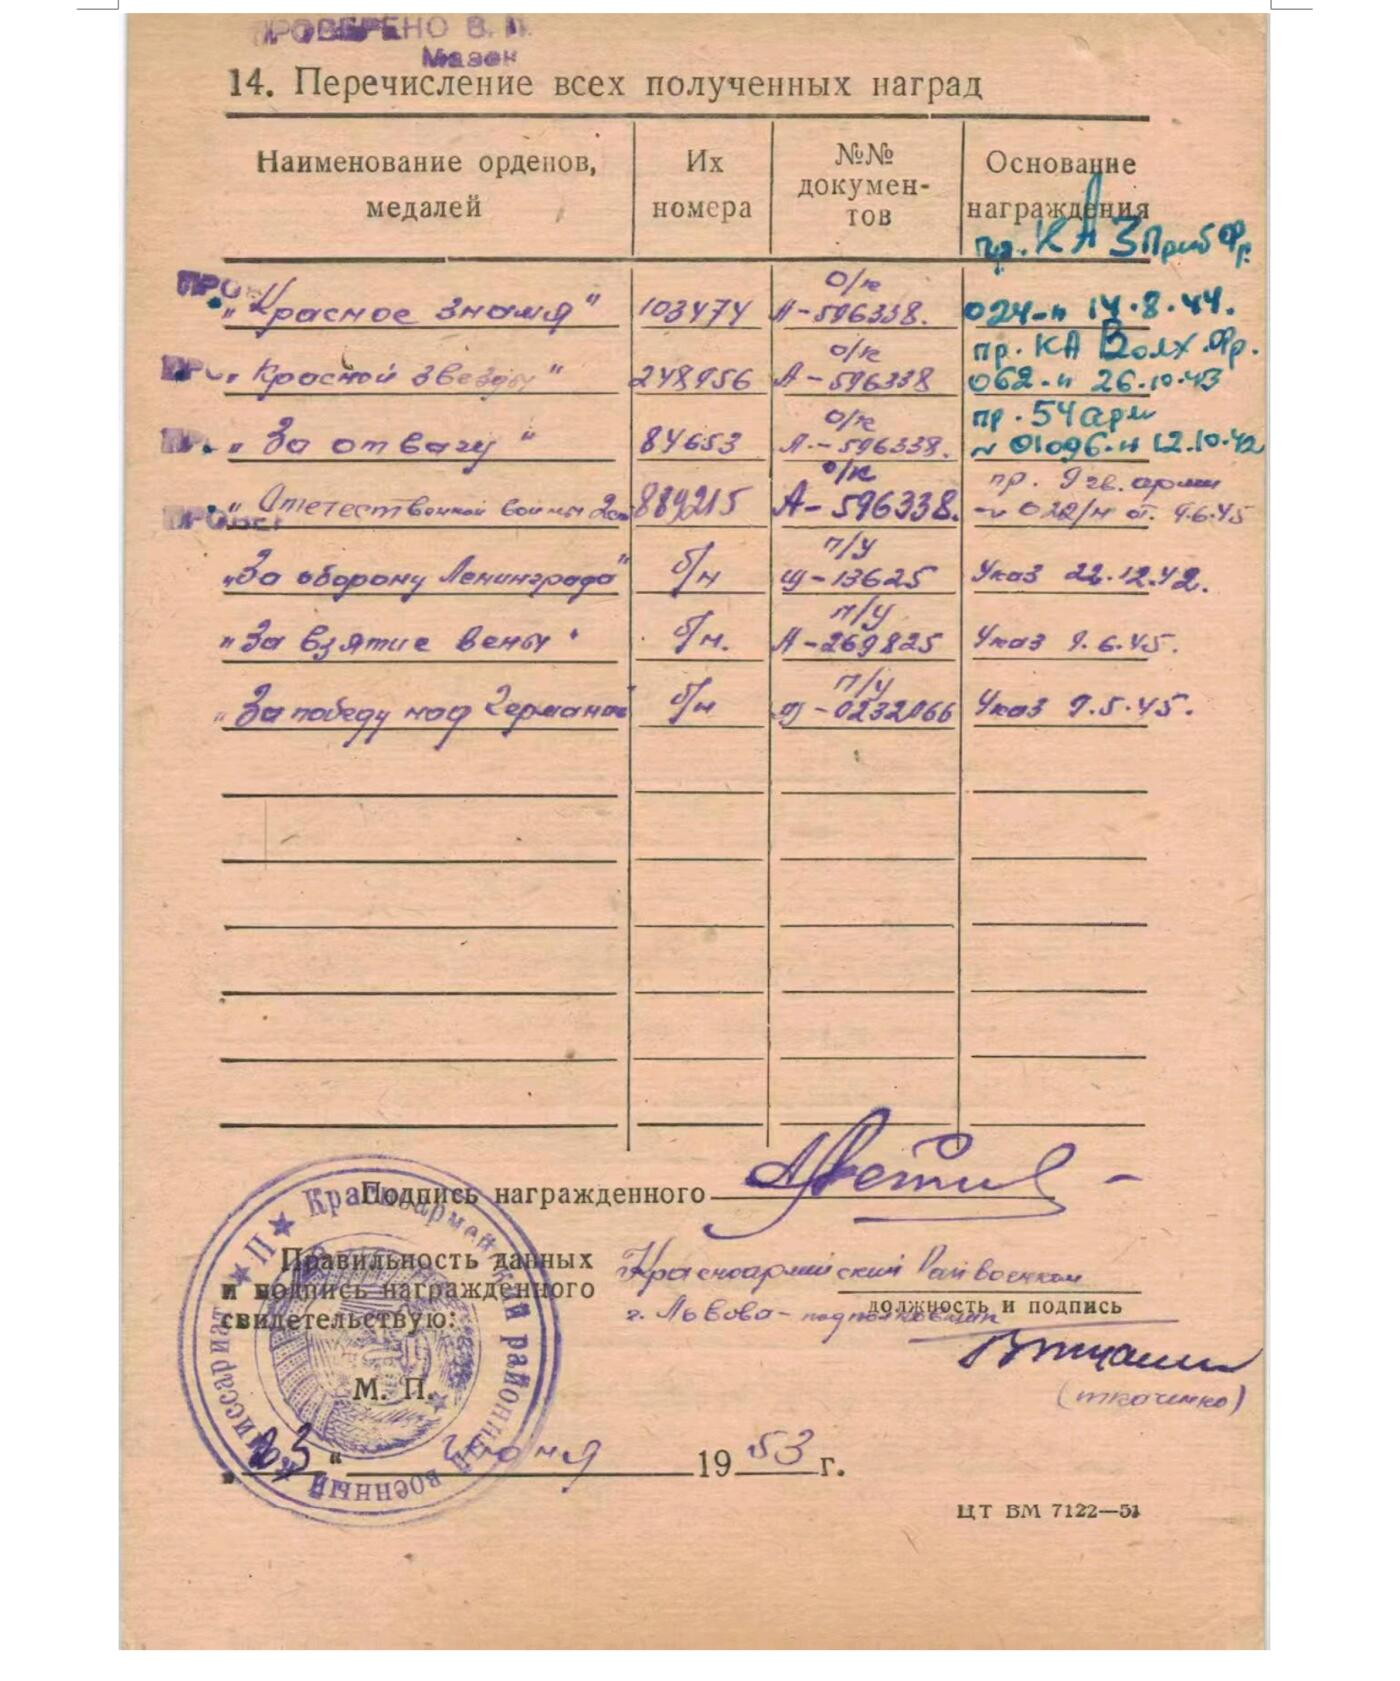 ПРОВЕРЕНО В. П.
Мазен
14. Перечисление всех полученных наград
Наименование орденов, медалей
Их номера
№№ докумен-тов
Основание награждения
пр. КА 3 Приб Фр.
ПРО
„Красное знамя" 103474 о/к А-596338. 024-н 14.8.44.
пр. КА Волх. Фр.
„Красной звезды" 248956 о/к А-596338 062-н 26.10.43
пр. 54 арм
„За отвагу" 84653 о/к А-596338. № 01096-н 12.10.42
пр. 9 гв. армии
„Отечественной войны 2ст 889215 о/к А-596338. № 022/н от 9.6.45
ПРОВЕР
„За оборону Ленинграда" б/н п/у Щ-13625 Указ 22.12.42.
„За взятие вены" б/н. п/у А-269825 Указ 9.6.45.
„За победу над Германией" б/н п/у Щ-0232066 Указ 9.5.45.
Подпись награжденного
Правильность данных
и подпись награжденного
свидетельствую:
Красноармейский Райвоенком
должность и подпись
г. Львова - подполковник
(ткаченко)
М. П.
„23" июня 1953 г.
Красноармейский районный военный комиссариат
ЦТ ВМ 7122—51